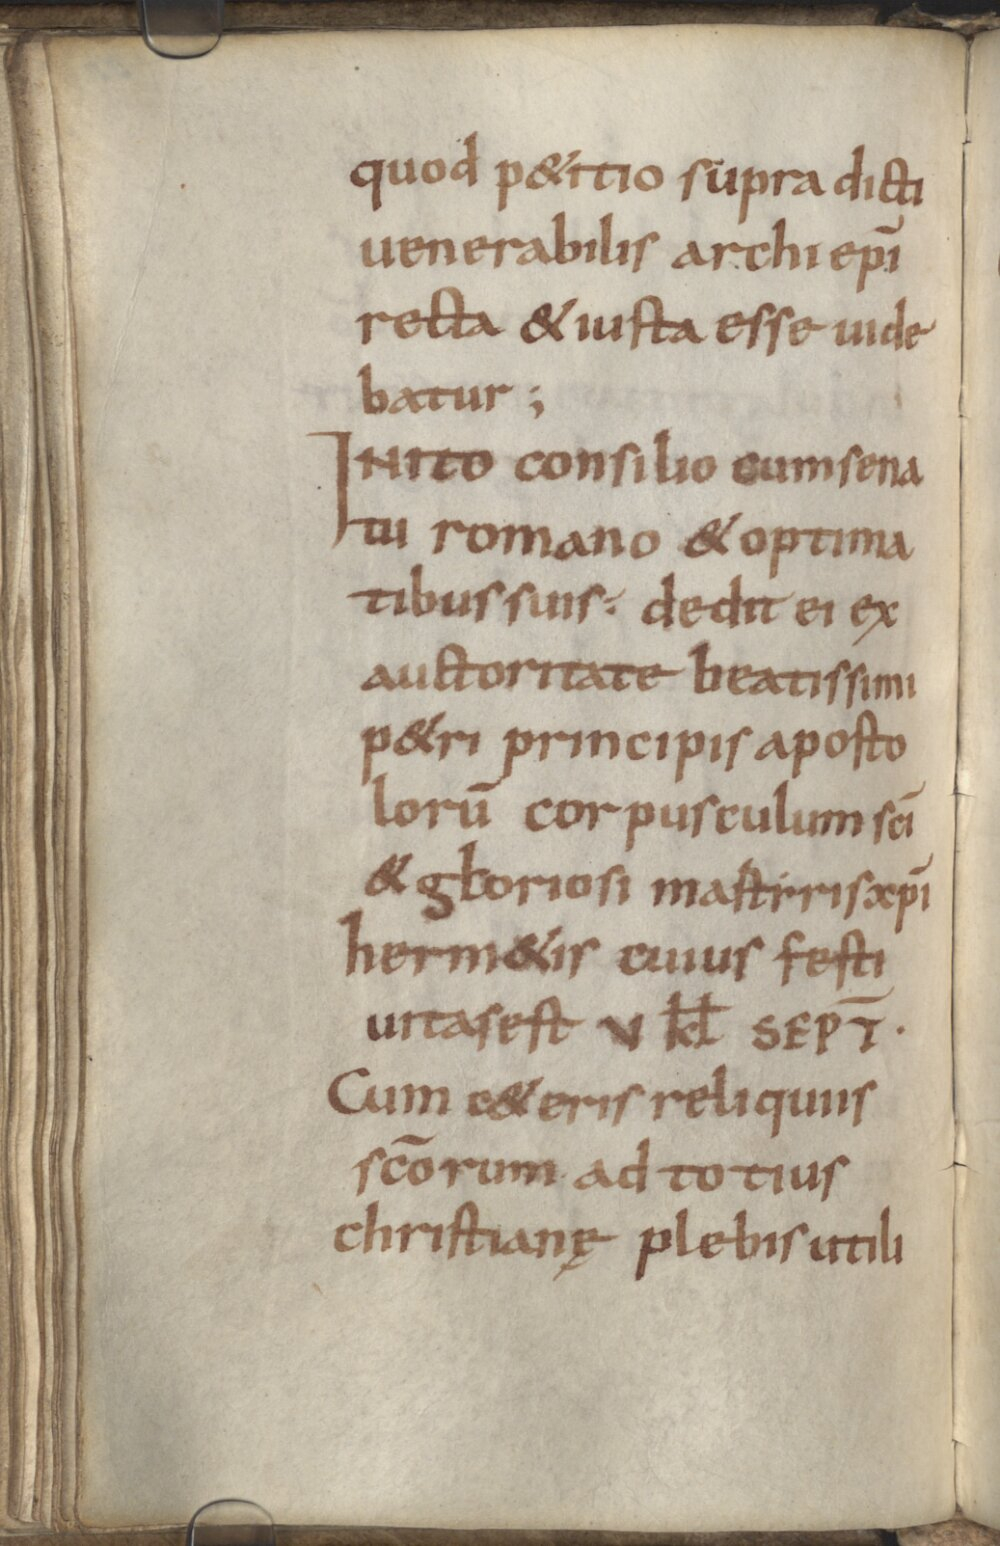 quod p&itio supra dicti
uenerabilis archi ep̄i
recta & iusta esse uide
batur ;
INITO consilio cum sena
tu romano & optima
tibus suis· dedit ei ex
auctoritate beatissimi
p&ri principis aposto
lorū corpusculum sc̄i
& gloriosi martyris xp̄i
herm&is cuius festi
uitas est V kł SEPT̄ ·
Cum c&eris reliquiis
sc̄orum ad totius
christianę plebis utili